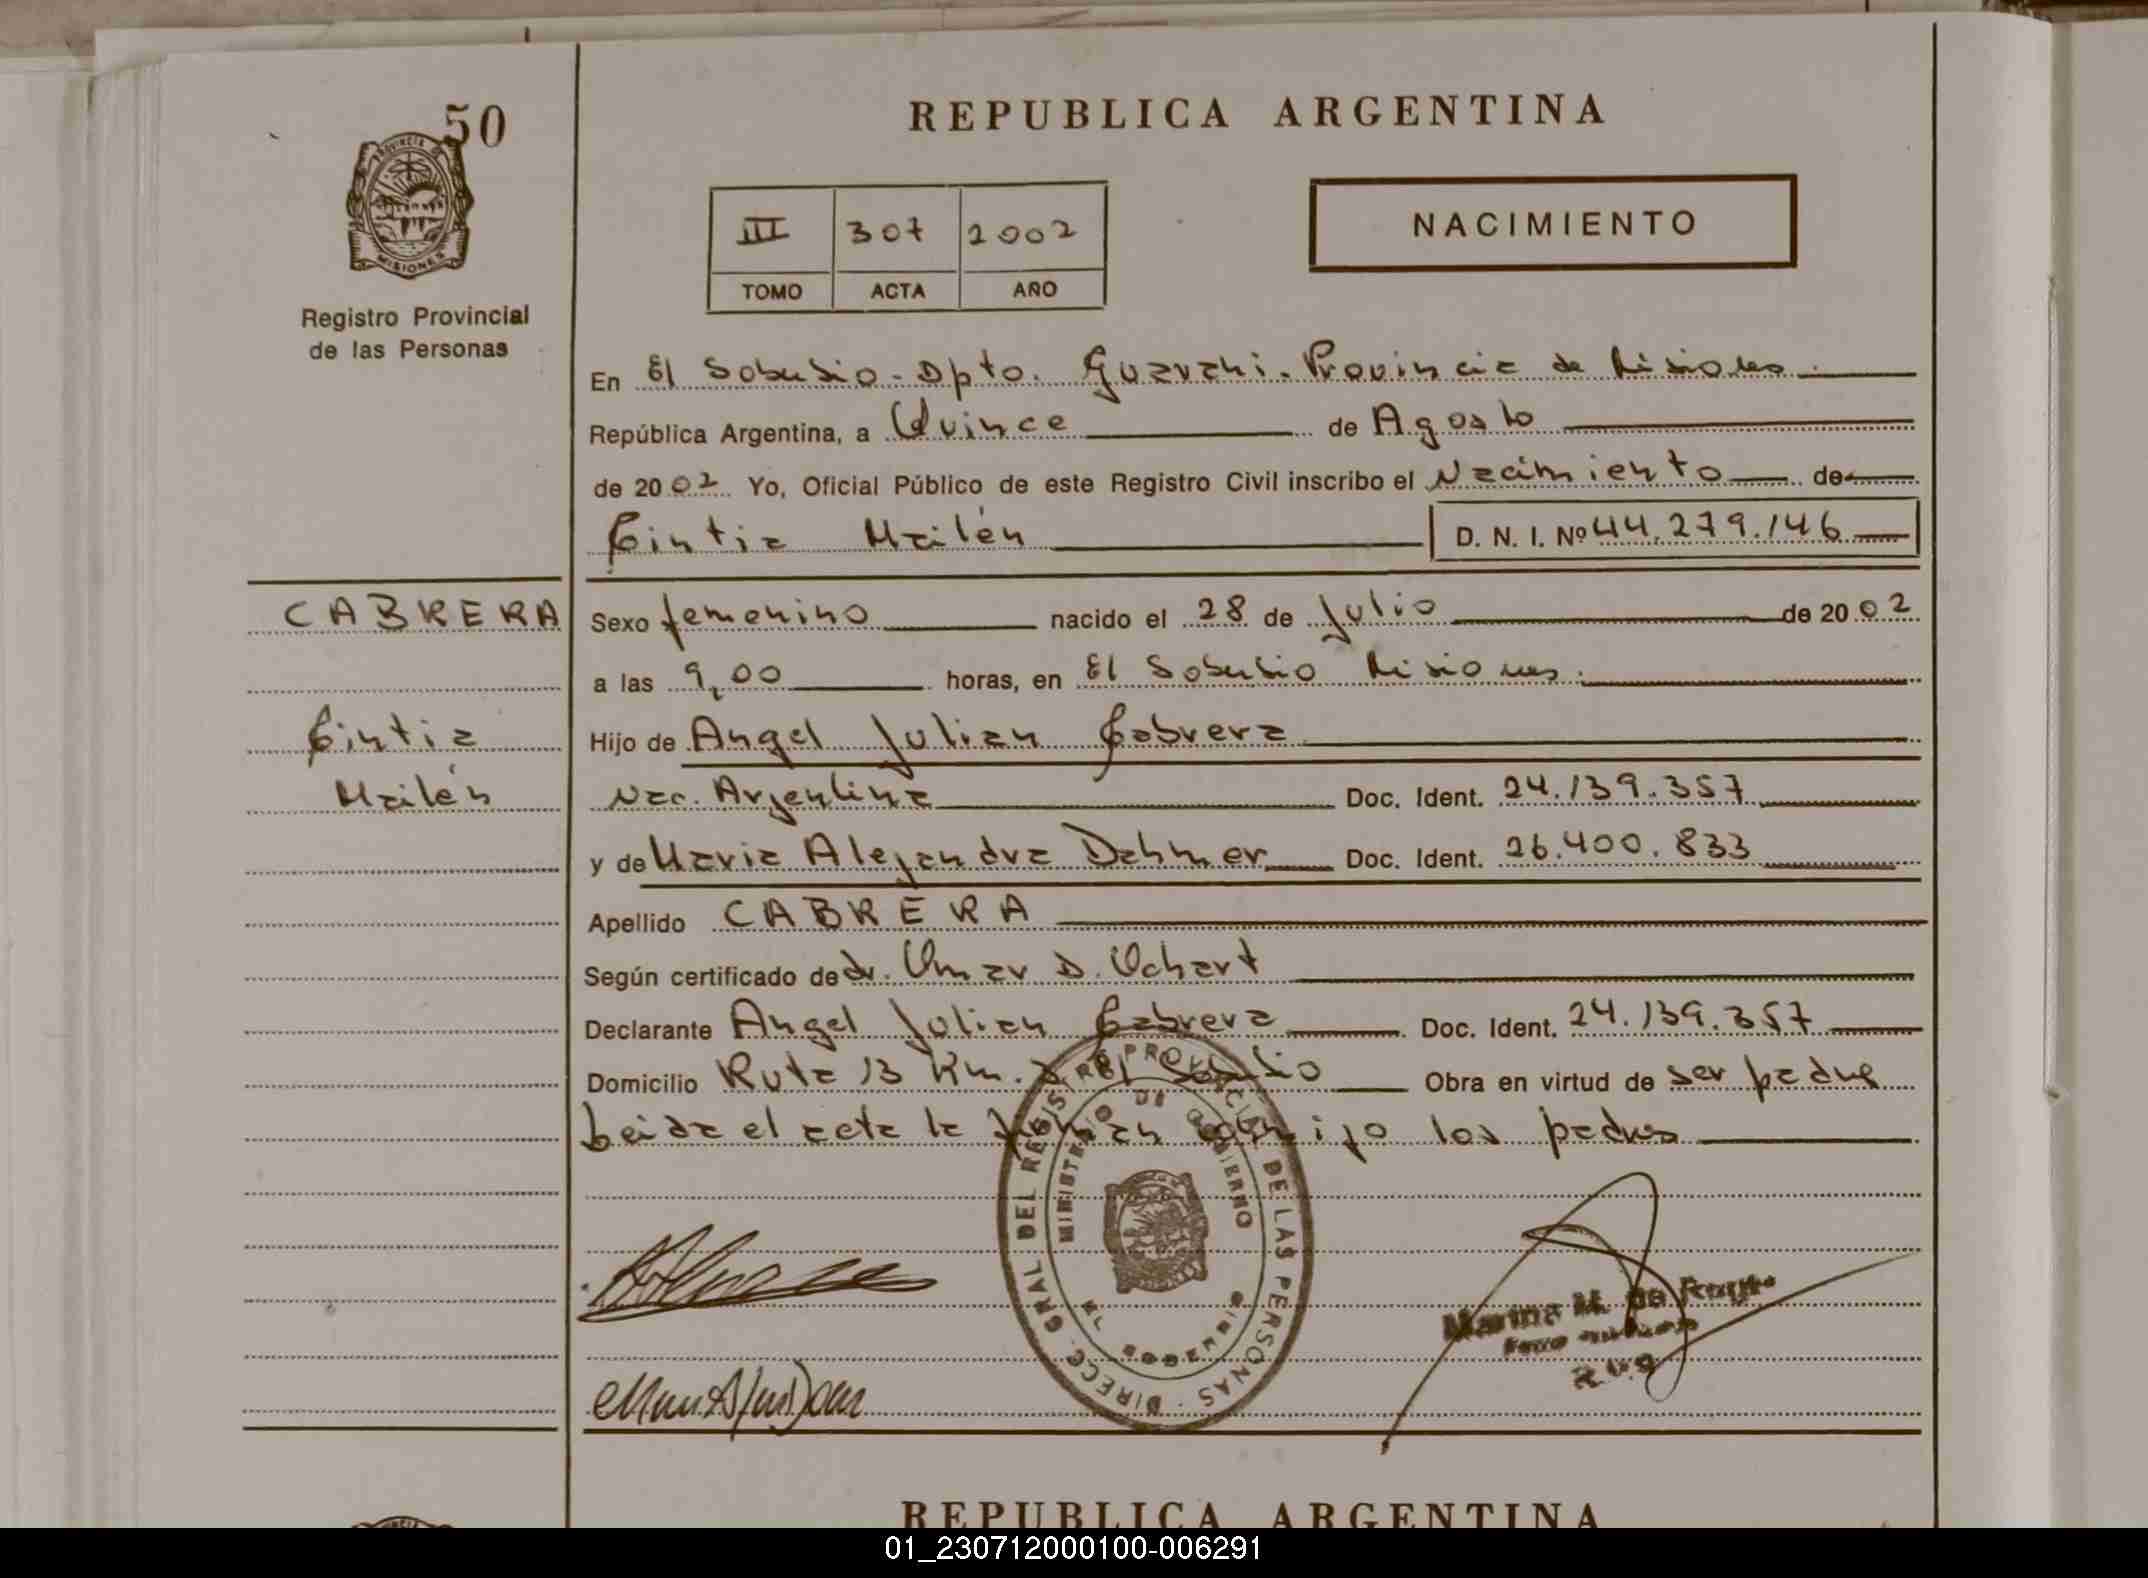 50
REPUBLICA ARGENTINA
PROVINCIA DE
MISIONES
III 307 2002
TOMO ACTA AÑO
NACIMIENTO
Registro Provincial
de las Personas
En El Soberbio - Dpto. Guarani - Provincia de Misiones.
República Argentina, a Quince de Agosto
de 2002 Yo, Oficial Público de este Registro Civil inscribo el Nacimiento de
Cintia Mailén D. N. I. Nº 44.279.146
CABRERA
Sexo femenino nacido el 28 de Julio de 2002
a las 9,00 horas, en El Soberbio Misiones.
Cintia
Hijo de Angel Julian Cabrera
Mailén
Nac. Argentina Doc. Ident. 24.139.357
y de Maria Alejandra Dahmer Doc. Ident. 26.400.833
Apellido CABRERA
Según certificado de dr. Omar D. Ochart
Declarante Angel Julian Cabrera Doc. Ident. 24.139.357
Domicilio Ruta 13 Km. El Soberbio Obra en virtud de ser padre
Leida el acta la firman conmigo los padres
DIRECC. GRAL DEL REGIST. PROVINCIAL DE LAS PERSONAS
MINISTERIO DE GOBIERNO
MISIONES
Marina M. de
REPUBLICA ARGENTINA
01_230712000100-006291